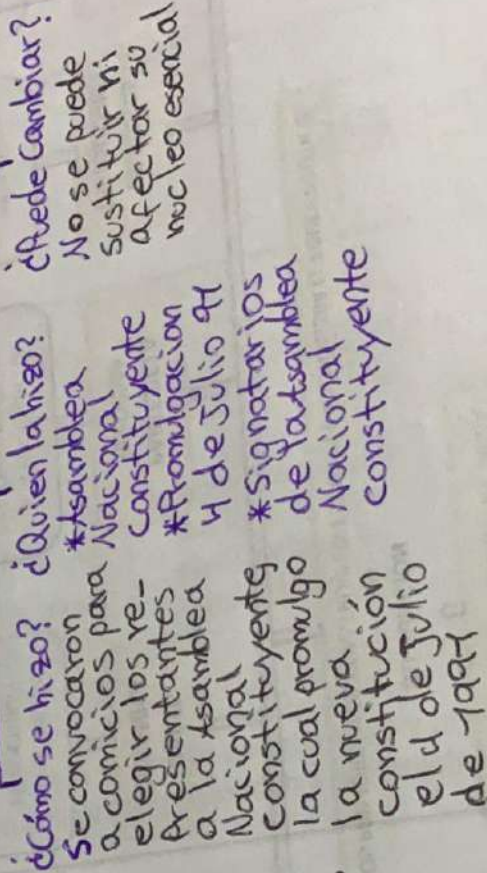 ¿Cómo se hizo?
Se convocaron
a comicios para
elegir los re-
presentantes
a la Asamblea
Nacional
Constituyente,
la cual promulgo
la nueva
constitución
el 4 de Julio
de 1991
¿Quien la hizo?
*Asamblea
Nacional
Constituyente
*Promulgacion
4 de Julio 91
*Signatarios
de la Asamblea
Nacional
Constituyente
¿Puede Cambiar?
No se puede
sustituir ni
afectar su
nucleo esencial